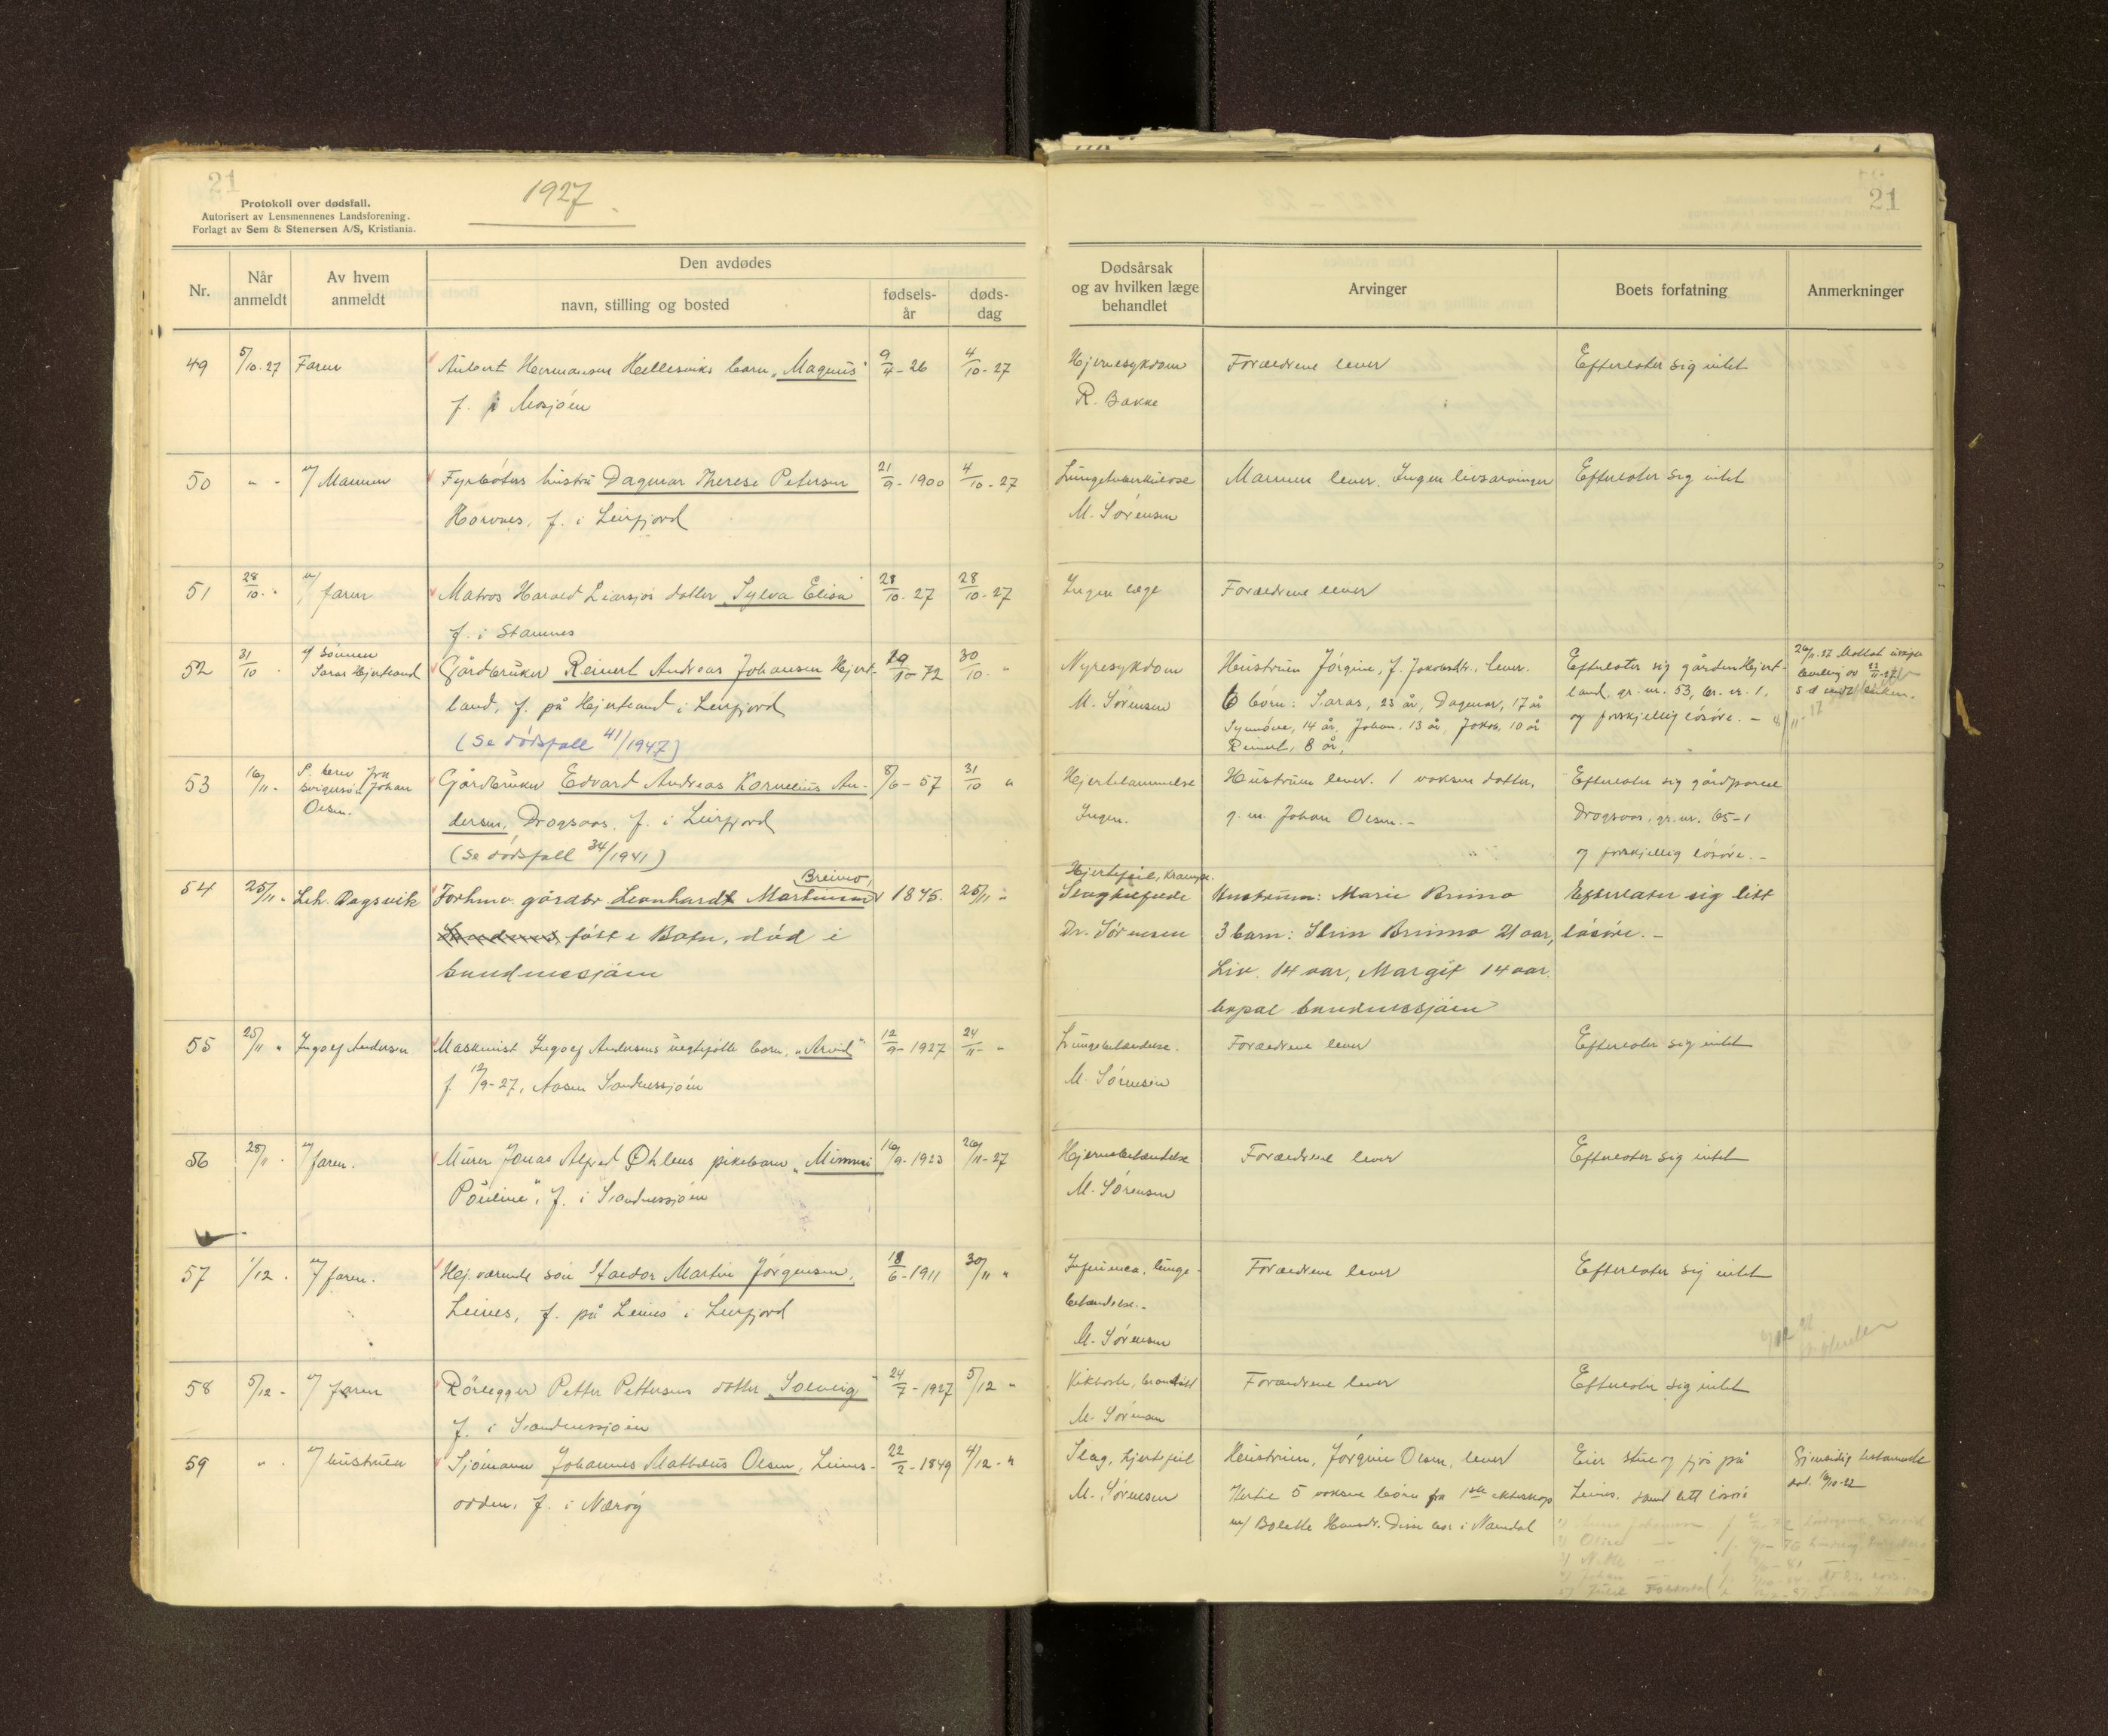 21
Protokoll over dødsfall.
Autorisert av Lensmennenes Landsforening.
Forlagt av Sem & Stenersen A/S, Kristiania.
1927
21
Nr.
Når anmeldt
Av hvem anmeldt
Den avdødes
navn, stilling og bosted
fødsels-år
døds-dag
Dødsårsak og av hvilken læge behandlet
Arvinger
Boets forfatning
Anmerkninger
49 5/10-27 Faren Hermansen Hellesviks barn, "Magnus" 9/4-26 4/10-27 Hjernesykdom Forældrene lever Efterlater sig intet
f. i Mosjøen R. Bakke
50 " - v/ Mannen Fyrbøters hustru Dagmar Therese Petersen 21/9-1900 4/10-27 Lungetuberkulose Mannen lever. Ingen livsarvinger Efterlater sig intet
f. i Leirfjord M. Sørensen
51 28/10 " v/ faren Matros Harald datter "Sylva Elisa" 28/10-27 28/10-27 Ingen læge Forældrene lever
f. i Stamnes
52 31/10 v/ sønnen Gårdbruker Reinert Andreas Johansen Hjert- 29/10-72 30/10 " Nyresykdom Hustruen Jørgine, f. Jakobsdtr. lever. Efterlater sig gården Hjert-
Saras Hjertland land, f. på Hjertland i Leirfjord M. Sørensen 6 børn: Saras, 23 år, Dagmar, 17 år land, gr. nr. 53, br. nr. 1,
Synnøve, 14 år, Johan, 13 år, Jakob, 10 år og forskjellig løsøre. -
(Se dødsfall 41/1947) Reinert, 8 år,
53 16/11 - P. brev fra Gårdbruker Edvard Andreas Kornelius An- 8/6-57 31/10 " Hjertelammelse Hustruen lever. 1 voksen datter, Efterlater sig gårdparcel
svigersøn Johan Olsen. dersen, Drogsaas, f. i Leirfjord Ingen. g. m. Johan Olsen. - Drogsaas, gr. nr. 65-1
(Se dødsfall 34/1941) og forskjellig løsøre. -
Breimo, Hjertefeil,
54 25/11 - Leh. Dagsvik Forhenv. gårdbr Leonhardt Martinsen 1875. 25/11 - Hustruen: Marie Brimo Efterlater sig litt
født i Bafn, død i Dr. Sørensen 3 barn: Brimo 21 aar, løsøre. -
Sandnessjøen Liv. 14 aar, Margit 14 aar.
bopæl Sandnessjøen
55 25/11 " Ingolf Andersen Maskinist Ingolf Andersens uegtefødte barn, "Arvid" 12/9-1927 24/11 - " Lungebetændelse. Forældrene lever Efterlater sig intet
f. 12/9-27, Aasen Sandnessjøen M. Sørensen
56 28/11 - v/ faren. Murer Jonas Alfred Øhlens pikebarn "Mimmi 16/9-1923 26/11-27 Hjernebetændelse Forældrene lever Efterlater sig intet
Pouline", f. i Sandnessjøen M. Sørensen
57 1/12 . v/ faren. Hj. værende søn Martin Jørgensen, 18/6-1911 30/11 " Influenca, lunge- Forældrene lever Efterlater sig intet
Leines, f. på Leines i Leirfjord betændelse. -
M. Sørensen
58 5/12 - v/ faren Rørlegger Petter Pettersens datter "Solveig" 24/7-1927 5/12 " Kikhoste, bronkitt Forældrene lever Efterlater sig intet
f. i Sandnessjøen M. Sørensen
59 " - v/ hustruen Sjømann Johannes Mathæus Olsen, Leines- 22/2-1849 4/12 - " Slag, hjertefeil Hustruen, Jørgine Olsen, lever Eier stue og fjøs på Gjensidig testamente
odden, f. i Nærøy M. Sørensen 5 voksne børn fra 1ste ekteskap Leines. samt litt løsøre dat.
m/ Bolette Hansdr. Disse bor i Namdal